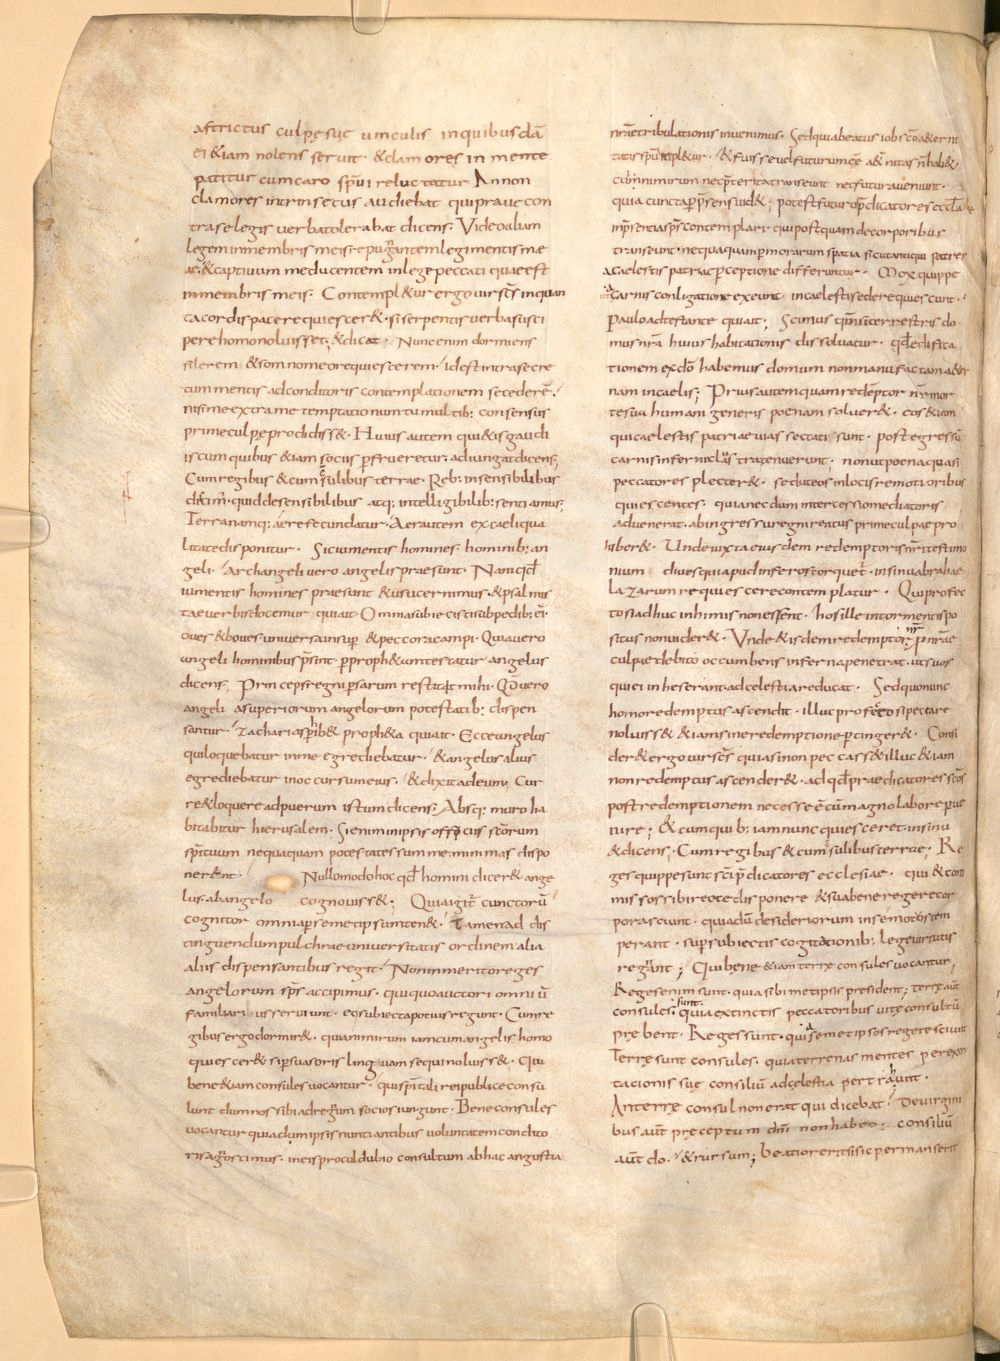 astrictus culpę suę vinculis in quibusdā
ei &iam nolens servit · &clamores in mente
patitur cum caro spūi reluctatur Annon
clamores intrinsecus audiebat qui prave con
tra se legis verba tolerabat dicens; Video aliam
legem in membris meis repugnantem legi mentis meę
ac &captivum me ducentem in lege peccati quae est
in membris meis · Contempl&ur ergo vir scs in quan
ta cordis pace requiescer& · si serpentis verba susci
pere homo noluisset; &dicat · Nunc enim dormiens
silerem &somno meo requiescerem · id est intra secre
tum mentis ad conditoris contemplationem secederē·
nisi me extra me temptationum tumultib; consensus
prime culpę prodidiss& · Huius autem qui&is gaudi
is cum quibus &iam socus perfrueretur · adiungat dicens;
Cum regibus &consulibus terrae · Reb; insensibilibus
dicim · quid de sensibilibus atq; intelligibilib; sentiamus;
Terra namq; aere fecundatur · Aer autem ex caeli qua
litate disponitur · Sic iumentis homines · hominib; an
geli · Archangeli vero angelis praesunt · Nam qđ
iumentis homines praesunt &usu cernimus · &psalmis
tae verbis docemur qui ait · Omnia subiecisti sub pedib; ei·
oves &boves universa insup̄ &pecora campi · Quia vero
angeli hominibus p̄sint p̄ proph&am testatur angelus
dicens; Princeps regni persarum restitit mihi · Q̄d vero
angeli a superiorum angelorum potestatib; dispen
santur · zacharias perhib& proph&a qui ait · Ecce angelus
qui loquebatur in me egrediebatur · &angelus alius
egrediebatur in occursum eius · &dixit ad eum; Cur
re &loquere ad puerum istum dicens; Absq; muro ha
bitabitur hierusalem · Si enim in ipsis officiis scorum
spirituum nequaquam potestates summe minimas dispo
nerent · Nullo modo hoc qđ homini dicer& ange
lus · ab angelo cognoviss&; Quia igit̄ cunctorū
cognitor omnia p̄ semetipsum ten& · Tamen ad dis
tinguendum pulchrae universitatis ordinem alia
aliis dispensantibus regit · Non inmerito reges
angelorum sps accipimus · qui quo auctori omniū
familiarius serviunt · eo subiecta potius regunt · Cum re
gibus ergo dormir& · quia nimirum iam cum angelis homo
quiescer& si persuasoris linguam sequi noluiss& · Qui
bene &iam consules vocantur · qui spiritali reipublice consu
lunt dum nos sibi ad regnum socios iungunt · Bene consules
vocantur quia dum ipsis nuntiantibus voluntatem condito
ris agnoscimus · in eis procul dubio consultum ab hac angustia
nrāe tribulationis invenimus · Sed quia beatus iob scō aeterni
tatis spū repl&ur · &fuisse vel futurum eē aeternitas n̄ hab&·
cui nimirum nec p̄terita transeunt nec futura veniunt ·
quia cuncta p̄ p̄sens vid&; potest futuros p̄dicatores ecclae
in p̄sentia sp̄s contemplari qui postquam de corporibus
transeunt · nequaquam p̄ morarum spatia sicut antiqui patres
a caelestis patriae p̄ceptione differuntur · Mox quippe
ut a carnis conligatione exeunt · in caelesti sede requiescunt ·
Paulo adtestante qui ait; Scimus qm̄ si terrestris do
mus nrā huius habitationis dissolvatur · qđ edifica
tionem ex dō habemus domum non manufactam aeter
nam in caelis; Prius autem quam redemptor nr̄ mor
te sua humani generis poenam solver& · eos &iam
qui caelestis patriae vias sectati sunt · post egressū
carnis inferni claustra tenuerunt; non ut poena quasi
peccatores plecter& · sed ut eos in locis remotioribus
quiescentes · quia necdum intercessio mediatoris
advenerat · ab ingressu regni reatus prime culpae pro
hiber& · Unde iuxta eiusdem redemptoris nr̄i testimo
nium dives qui apud inferos torquet̄ · in sinu abrahae
lazarum requiescere contemplatur · Qui profec
to si adhuc in himis non essent · hos ille in tormentis po
situs non vider& · Unde &isdem redemptor nr̄ p̄ nrāe
culpae debito occumbens inferna penetrat · ut suos
qui ei inheserant ad celestia reducat · Sed quo nunc
homo redemptus ascendit · illuc profecto si peccare
noluiss& &iam sine redemptione pertinger& · Consi
der& ergo vir scs quia si non peccass& illuc &iam
non redemptus ascender& · ad qđ praedicatores scōs
post redemptionem necesse ē cum magno labore perve
nire; &cum quib; iam nunc quiesceret · insinu
&dicens; Cum regibus &consulibus terrae; Re
ges quippe sunt scī p̄dicatores ecclesiae · qui &com
missos sibi recte disponere &sua bene regere cor
pora sciunt · qui adū desideriorum in se motos tem
perant · sup̄ subiectis cogitationib; lege virtutis
regnant; Qui bene &iam terre consules vocantur;
Reges enim sunt · quia sibimetipsis president; terre aūt
consules sunt quia extinctis peccatoribus vitę consultū
prębent · Reges sunt · quia semetipsos regere sciunt
Terrę sunt consules · quia terrenas mentes per exor
tacionis suę consiliū ad cęlestia pertrahunt ·
An terrę consul non erat qui dicebat; De virgini
bus aūt preceptum dn̄i non habeo; consiliū
aūt do · &rursum; beatior erit si sic permanserit